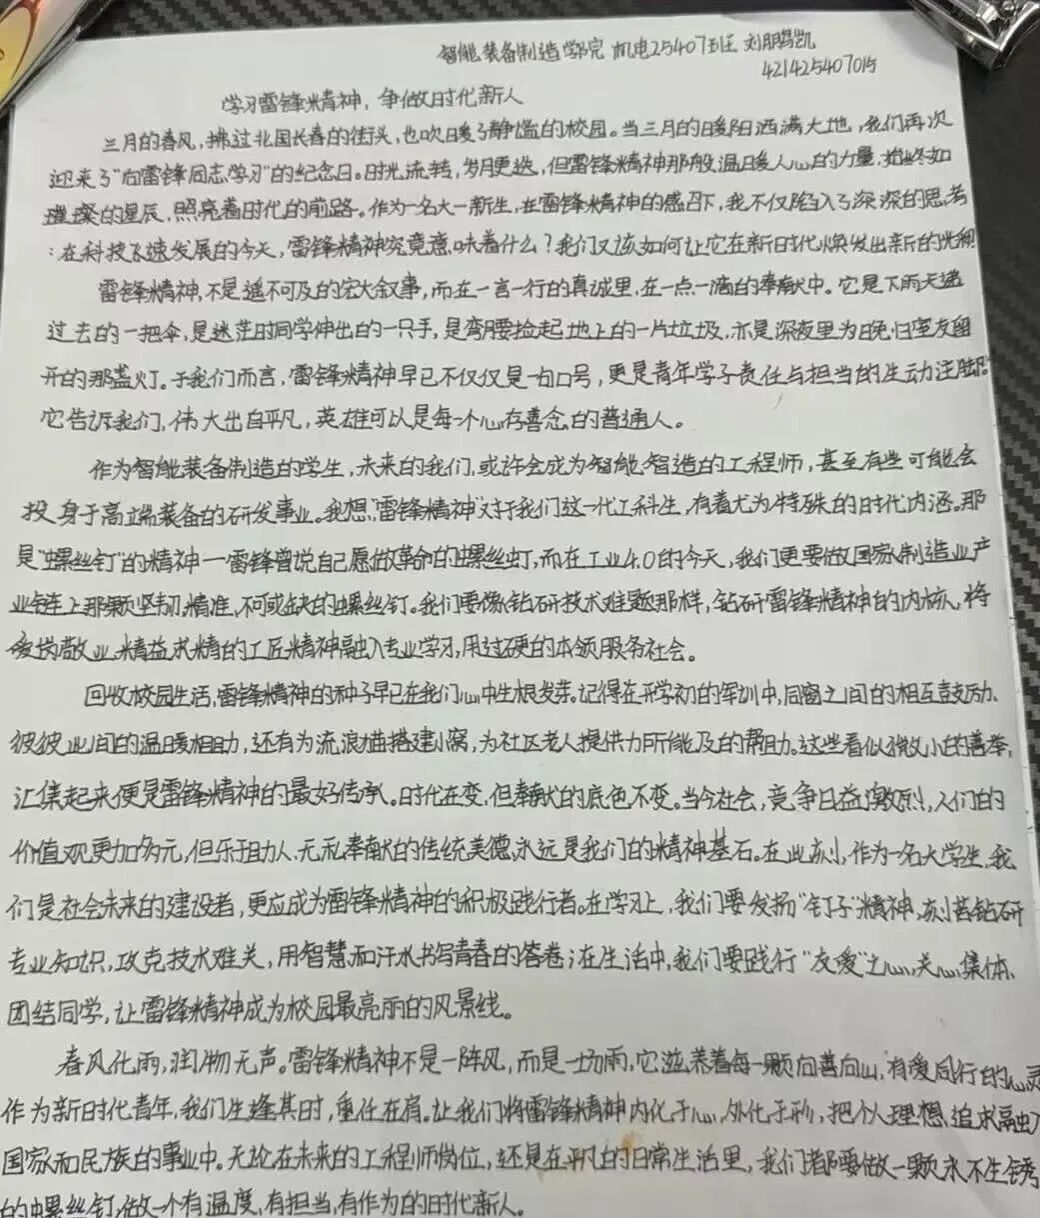 智能装备制造学院 机电25407班 刘鹏凯
421425407015
学习雷锋精神，争做时代新人
三月的春风，拂过北国长春的街头，也吹暖了静谧的校园。当三月的暖阳洒满大地，我们再次
迎来了“向雷锋同志学习”的纪念日。时光流转，岁月更迭，但雷锋精神那般温暖人心的力量，始终如
璀璨的星辰，照亮着时代的前路。作为一名大一新生，在雷锋精神的感召下，我不仅陷入了深深的思考
：在科技飞速发展的今天，雷锋精神究竟意味着什么？我们又该如何让它在新时代焕发出新的光
雷锋精神，不是遥不可及的宏大叙事，而在一言一行的真诚里，在一点一滴的奉献中。它是下雨天递
过去的一把伞，是迷茫时同学伸出的一只手，是弯腰捡起地上的一片垃圾，亦是深夜里为晚归室友留
开的那盏灯。于我们而言，雷锋精神早已不仅仅是一句口号，更是青年学子责任与担当的生动注脚。
它告诉我们，伟大出自平凡，英雄可以是每一个心存善念的普通人。
作为智能装备制造的学生，未来的我们，或许会成为智能智造的工程师，甚至有些可能会
投身于高端装备的研发事业。我想，“雷锋精神”对于我们这一代工科生，有着尤为特殊的时代内涵。那
是“螺丝钉”的精神—雷锋曾说自己愿做革命的螺丝钉，而在工业4.0的今天，我们更要做国家制造业产
业链上那颗坚韧、精准、不可或缺的螺丝钉。我们要像钻研技术难题那样，钻研雷锋精神的内核，将
爱岗敬业、精益求精的工匠精神融入专业学习，用过硬的本领服务社会。
回收校园生活，雷锋精神的种子早已在我们心中生根发芽。记得在开学初的军训中，同窗之间的相互鼓励、
彼彼此间的温暖相助，还有为流浪猫搭建小窝，为社区老人提供力所能及的帮助。这些看似微小的善举，
汇集起来便是雷锋精神的最好传承。时代在变，但奉献的底色不变。当今社会，竞争日益激烈，人们的
价值观更加多元，但乐于助人、无私奉献的传统美德，永远是我们的精神基石。在此刻，作为一名大学生，我
们是社会未来的建设者，更应成为雷锋精神的积极践行者。在学习上，我们要发扬“钉子”精神，刻苦钻研
专业知识，攻克技术难关，用智慧和汗水书写青春的答卷；在生活中，我们要践行“友爱”之心，关心集体、
团结同学，让雷锋精神成为校园最亮丽的风景线。
春风化雨，润物无声。雷锋精神不是一阵风，而是一场雨，它滋养着每一颗向善向山，有爱同行的心灵
作为新时代青年，我们生逢其时，重任在肩。让我们将雷锋精神内化于心，外化于形，把个人理想，追求融入
国家和民族的事业中。无论在未来的工程师岗位，还是在平凡的日常生活里，我们都要做一颗永不生锈
的螺丝钉，做一个有温度，有担当，有作为的时代新人。